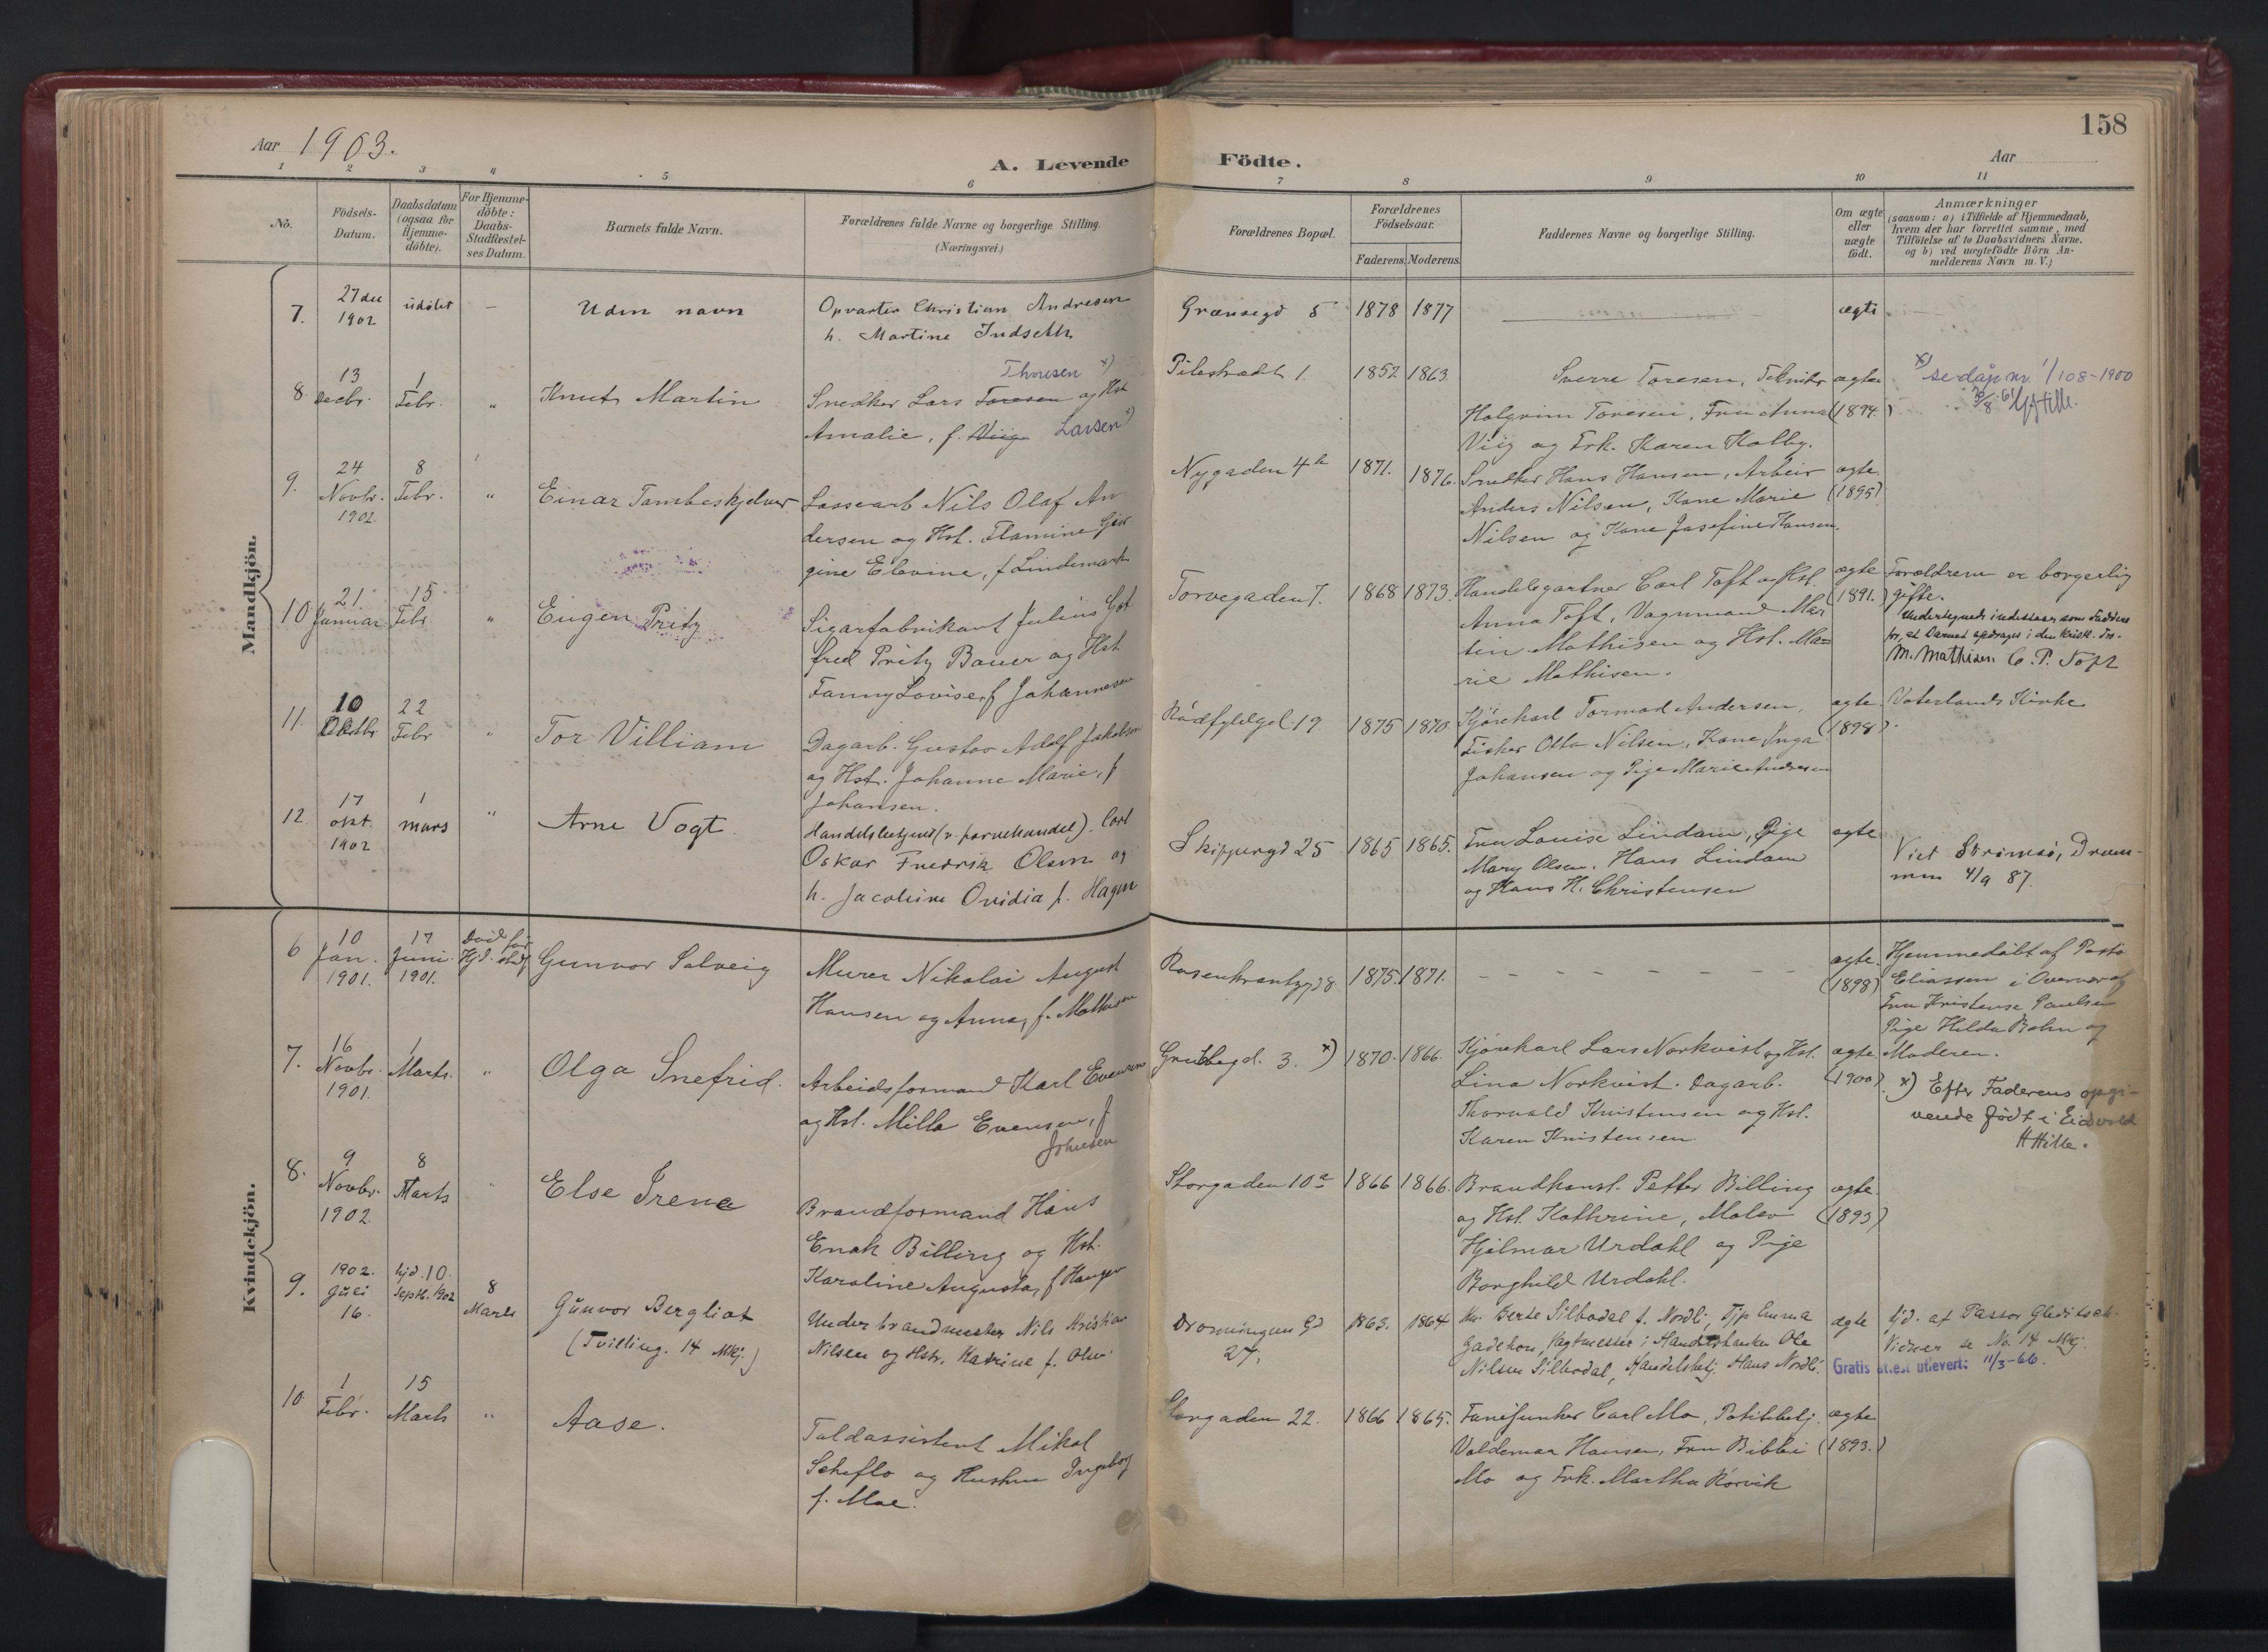 158
Aar 1903.
A. Levende Födte.
Aar
1 2 3 4 5 6 7 8 9 10 11
No.
Födsels-Datum.
Daabsdatum (ogsaa for Hjemme-döbte).
For Hjemme-döbte: Daabs-Stadfæstel-ses Datum.
Barnets fulde Navn.
Forældrenes fulde Navne og borgerlige Stilling.
(Næringsvei.)
Forældrenes Bopæl.
Forældrenes Födselsaar.
Faderens. Moderens.
Faddernes Navne og borgerlige Stilling.
Om ægte eller uægte födt.
Anmærkninger
(saasom: a) i Tilfælde af Hjemmedaab,
hvem der har forrettet samme, med
Tilföielse af to Daabsvidners Navne.
og b) ved uægtefödte Börn An-
melderens Navn m. V.)
Mandkjön.
7. 27 dec 1902 udöbt — Uden navn
Opvarter Christian Andresen
h. Martine Indseth
Grænsegd 5 1878 1877 ægte
8. 13 Decbr. 1 Febr. " Knut Martin
Thoresen x)
Snedker Lars Toresen og Hst
Amalie, f. Viig Larsen x)
Pilestrædet 1. 1852 1863.
Sverre Toresen, Tekniker
Halgrim Toresen, Fru Anna
Viig og Frk. Karen Kolby.
ægte (1894.)
x) se dåp nr. 1/108-1900
9. 24 Novbr. 1902. 8 Febr. " Einar Tambeskjelver
Lossearb Nils Olaf An
dersen og Hst. Flamine Geor
gine Elevine, f Lindemark
Nygaden 4b 1871. 1876.
Snedker Hans Hansen, Arbeir
Anders Nilsen, Kone Marie
Nilsen og Kone Josefine Hansen.
ægte. (1895)
10 21. Januar 15 Febr. " Eugen Pritz
Sigarfabrikant Julius Got
fred Pritz Bauer og Hst
Fanny Lovise, f Johannesen
Torvegaden 7. 1868 1873.
Handelsgartner Carl Toft og Hst.
Anna Toft, Vognmand Mar
tin Mathisen og Hst. Ma=
rie Mathisen.
ægte (1891.)
Forældrene er borgerlig
gifte.
Undertegnede indestaar som Faddere
for, at Barnet opdrages i den kristl. Tro.
M. Mathisen C. P. Toft
11. 10 Oktbr. 22 Febr. " Tor Villiam
Dagarb. Gustav Adolf Jakobsen
og Hst. Johanne Marie, f
Johansen.
Rådfyldgd. 19 1875 1870
Kjørekarl Tormod Andersen,
Fisker Otto Nilsen, Kone Inga
Johansen og Pige Marie Andresen
ægte (1898)
Vaterlands Kirke
12. 17 okt. 1902 1 mars " Arne Vogt.
Handelsbetjent (v. farvehandel). Carl
Oskar Fredrik Olsen og
h. Jacobine Ovidia f. Hagen
Skippergd 25 1865 1865.
Fru Louise Lindam, Pige
Mary Olsen. Hans Lindam
og Hans H. Christensen
ægte
Viet Strømsö, Dram-
men 4/9 87.
Kvindekjön.
6 10 Jan. 1901. 17 Juni 1901. Död før Hjd. stadf Gunvor Solveig
Murer Nikolai August
Hansen og Anna, f. Mathisen
Rosenkrantzgd 8 1875. 1871. - - - - - - -
ægte. (1898)
Hjemmedöbt af Pastor
Eliassen i Overvær af
Fru Kristense Paulsen
Pige Hilda Bohn og
Moderen.
7. 16 Novbr. 1901. 1 Marts. " Olga Snefrid.
Arbeidsformand Karl Evensen
og Hst. Milla Evensen, f
Johnsen
Grubbegd. 3. x) 1870. 1866.
Kjörekarl Lars Norkvist og Hst.
Lina Norkvist. Dagarb.
Thorvald Kristensen og Hst.
Karen Kristensen
ægte (1900)
x) Efter Faderens opgi-
vende født i Eidsvold
H Hille.
8. 9 Novbr. 1902. 8 Marts " Else Irene
Brandformand Hans
Enok Billing og Hst.
Karoline Augusta, f Hauger
Storgaden 10a 1866 1866.
Brandkonst. Petter Billing
og Hst. Kathrine, Maler
Hjalmar Urdahl og Pige
Borghild Urdahl.
ægte. (1893)
9. 1902. Juli 16. hjd. 10. Septb. 1902 8 Marts Gunvor Bergliot
(Tvilling. 14 Mkj.)
Underbrandmester Nils Kristian
Nilsen og Hstr. Katrine f. Olsen
Dronningens Gd 27. 1863. 1864
Berte Silbodal f. Nordli, Tjp Emma
Gadeholt, Vagtmester i Handelsbanken Ole
Nilsen Silbodal, Handelsbetj. Hans Nordli.
ægte
hjd. af Pastor Gleditsch.
Vidner se No. 14 Mkj.
Gratis attest utlevert: 11/3-66.
10 1 Febr. 15 Marts " Aase.
Toldassistent Mikal
Scheflo og Hustru Ingeborg
f. Moe.
Storgaden 22. 1866 1865.
Fanejunker Carl Mo, Politibetj.
Valdemar Hansen, Fru Bibbi
Mo og Frk. Martha Rörvik
ægte (1893.)